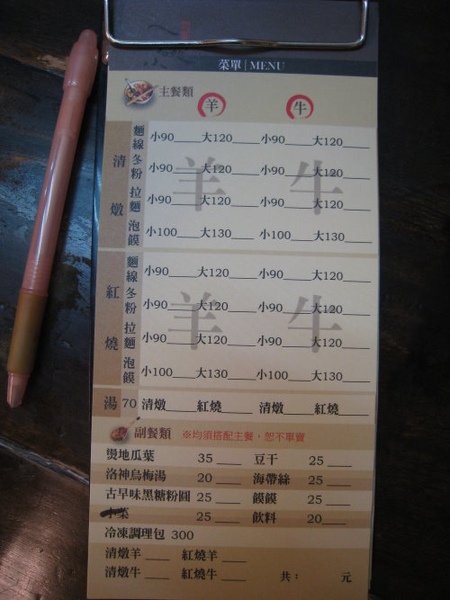 菜單 | MENU
主餐類 羊 牛
清燉 羊 牛
麵線 小90___大120___ 小90___大120___
冬粉 小90___大120___ 小90___大120___
拉麵 小90___大120___ 小90___大120___
泡饃 小100___大130___ 小100___大130___
紅燒 羊 牛
麵線 小90___大120___ 小90___大120___
冬粉 小90___大120___ 小90___大120___
拉麵 小90___大120___ 小90___大120___
泡饃 小100___大130___ 小100___大130___
湯 70 清燉___ 紅燒___ 清燉___ 紅燒___
副餐類 ※均須搭配主餐，恕不單賣
燙地瓜葉 35 ___ 豆干 25 ___
洛神烏梅湯 20 ___ 海帶絲 25 ___
古早味黑糖粉圓 25 ___ 饃饃 25 ___
菜 25 ___ 飲料 20 ___
冷凍調理包 300
清燉羊 ___ 紅燒羊 ___
清燉牛 ___ 紅燒牛 ___ 共： 元